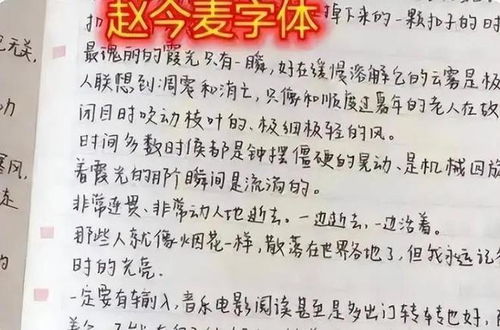 赵今麦字体
掉下来的一颗扣子的时
最瑰丽的霞光只有一瞬，好在缓慢溶解它的云雾是极
人联想到凋零和消亡，只像和顺度过暮年的老人在故
闭目时吹动枝叶的、极细极轻的风。
时间多数时候都是钟摆僵硬的晃动、是机械四放
着霞光的那个瞬间是流淌的。
非常连贯、非常动人地逝去。一边逝去，一边活着。
那些人就像烟花一样，散落在世界各地了，但我永远记
时的光亮
一定要有输入，音乐电影阅读甚至是多出门转转也好，